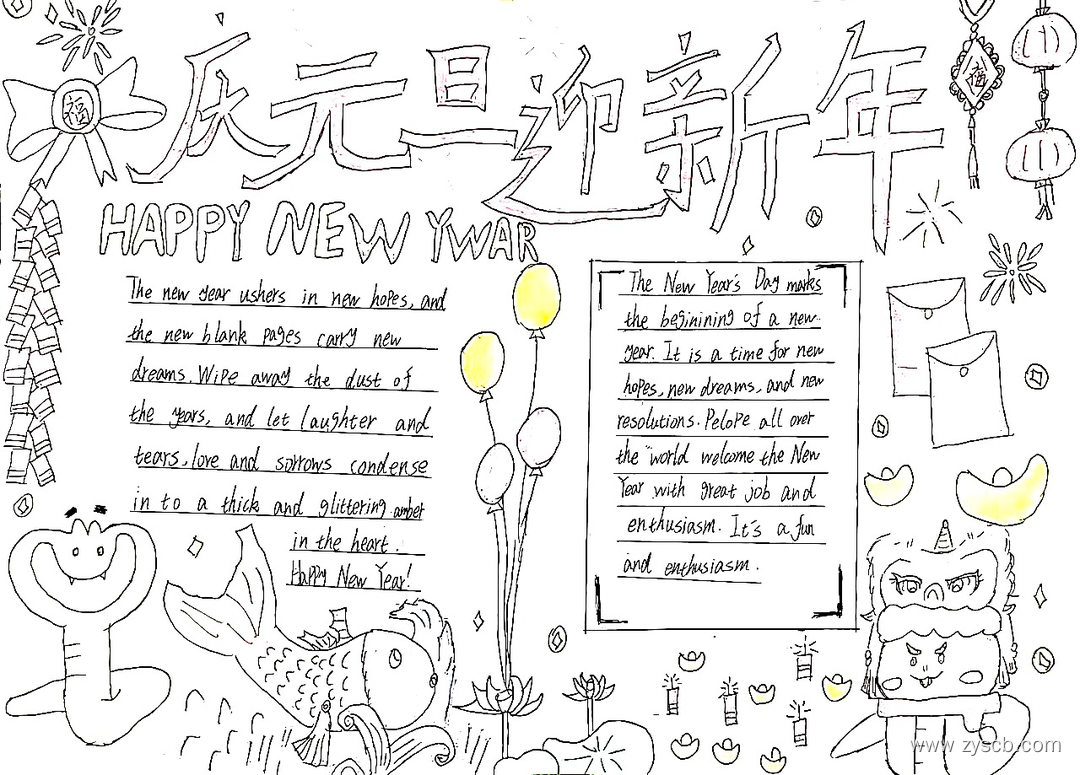 庆元旦迎新年
福
福
HAPPY NEW YWAR
The new year ushers in new hopes, and
the new blank pages carry new
dreams. Wipe away the dust of
the years, and let laughter and
tears, love and sorrows condense
in to a thick and glittering amber
in the heart.
Happy New Year!
The New Year's Day marks
the beginining of a new
year. It is a time for new
hopes, new dreams, and new
resolutions. Pelope all over
the world welcome the New
Year with great job and
enthusiasm. It's a fun
and enthusiasm.
www.zyscb.com